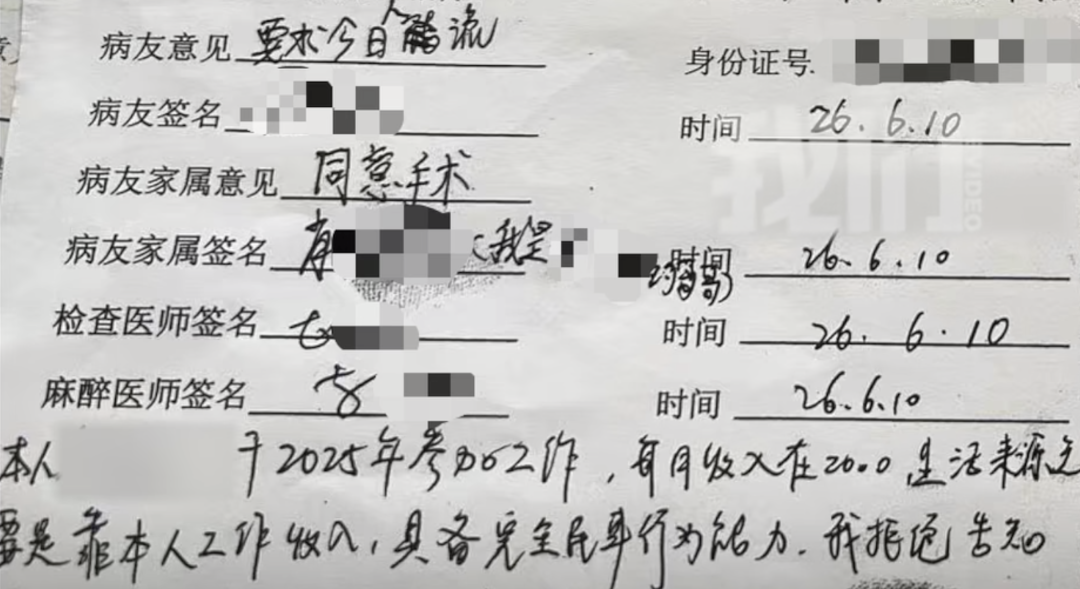 病友意见 要求今日人流 身份证号
病友签名 时间 26.6.10
病友家属意见 同意手术
病友家属签名 肖 (我是 的哥哥) 时间 26.6.10
检查医师签名 时间 26.6.10
麻醉医师签名 时间 26.6.10
本人 于2025年参加工作,每月收入在2000,生活来源主
要是靠本人工作收入,具备完全民事行为能力.我拒绝告知
我们
VIDEO